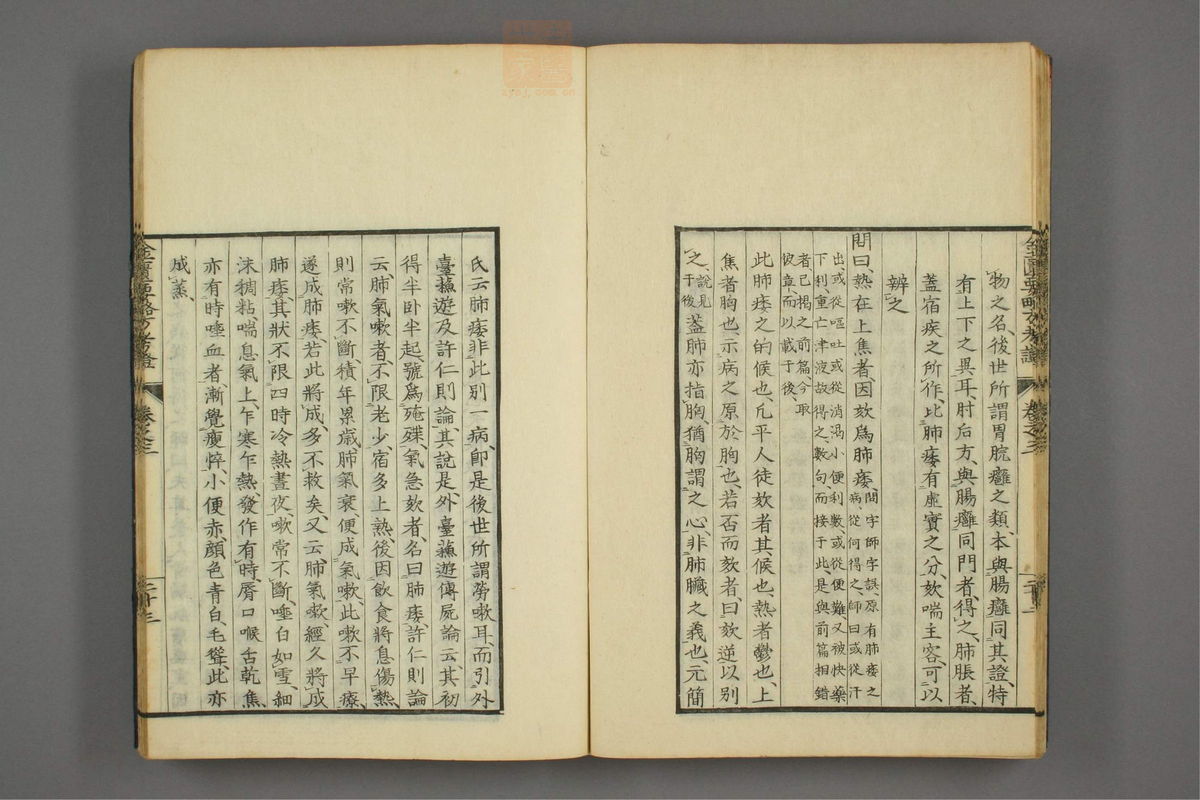 物之名、後世所謂胃脘癰之類、本與腸癰同其證、特
有上下之異耳、肘后方、與腸癰同門者、得之、肺脹者、
蓋宿疾之所作、比肺痿有虛實之分、欬喘主客、可以
辨之
問曰、熱在上焦者、因欬爲肺痿、問字師字誤、原有肺痿之
病、從何得之、師曰或從汗
出、或從嘔吐、或從消渴小便利數、或從便難、又被快藥
下利、重亡津液、故得之、數句、而接于此、是與前篇相錯
者、已揭之前篇、今取
彼章、而以載于後、
此肺痿之的候也、凡平人徒欬者、其候也、熱者鬱也、上
焦者胸也、示病之原於胸也、若否而欬者、曰欬逆以別
之、說見
于後、蓋肺亦指胸、猶胸謂之心、非肺臟之義也、元簡
氏云肺痿非此別一病、卽是後世所謂勞嗽耳、而引外
臺蘓遊及許仁則論、其說是、外臺蘓遊傳屍論云其初
得半卧半起、號爲殗殜、氣急欬者、名曰肺痿、許仁則論
云肺氣嗽者、不限老少、宿多上熱、後因飲食將息傷熱、
則常嗽不斷、積年累歲、肺氣衰、便成氣嗽、此嗽不早療、
遂成肺痿、若此將成、多不救矣、又云、肺氣嗽、經久將成
肺痿、其狀不限四時冷熱、晝夜、嗽常不斷、唾白如雪、細
沫稠粘、喘息氣上、乍寒乍熱、發作有時、脣口喉舌乾焦、
亦有時唾血者、漸覺瘦悴、小便赤、顏色青白、毛聳、此亦
成蒸、
金匱要略方考證
卷之三
金匱要略方考證
卷之三